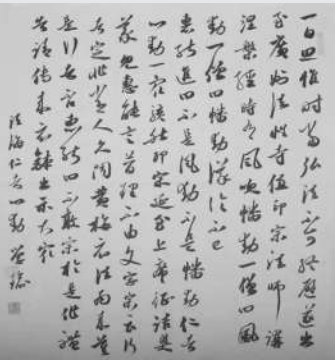 一日思惟時當弘法不可終遯遂出
至廣州法性寺值印宗法師講
涅槃經時有風吹幡動一僧曰風
動一僧曰幡動議論不已
惠能進曰不是風動不是幡動仁者
心動一眾駭然印宗延至上席徵詰奧
義見惠能言簡理當不由文字宗云行
者定非常人久聞黃梅衣法南來莫
是行者否惠能曰不敢宗於是作禮
告請傳來衣鉢出示大眾
法海 仁者心動